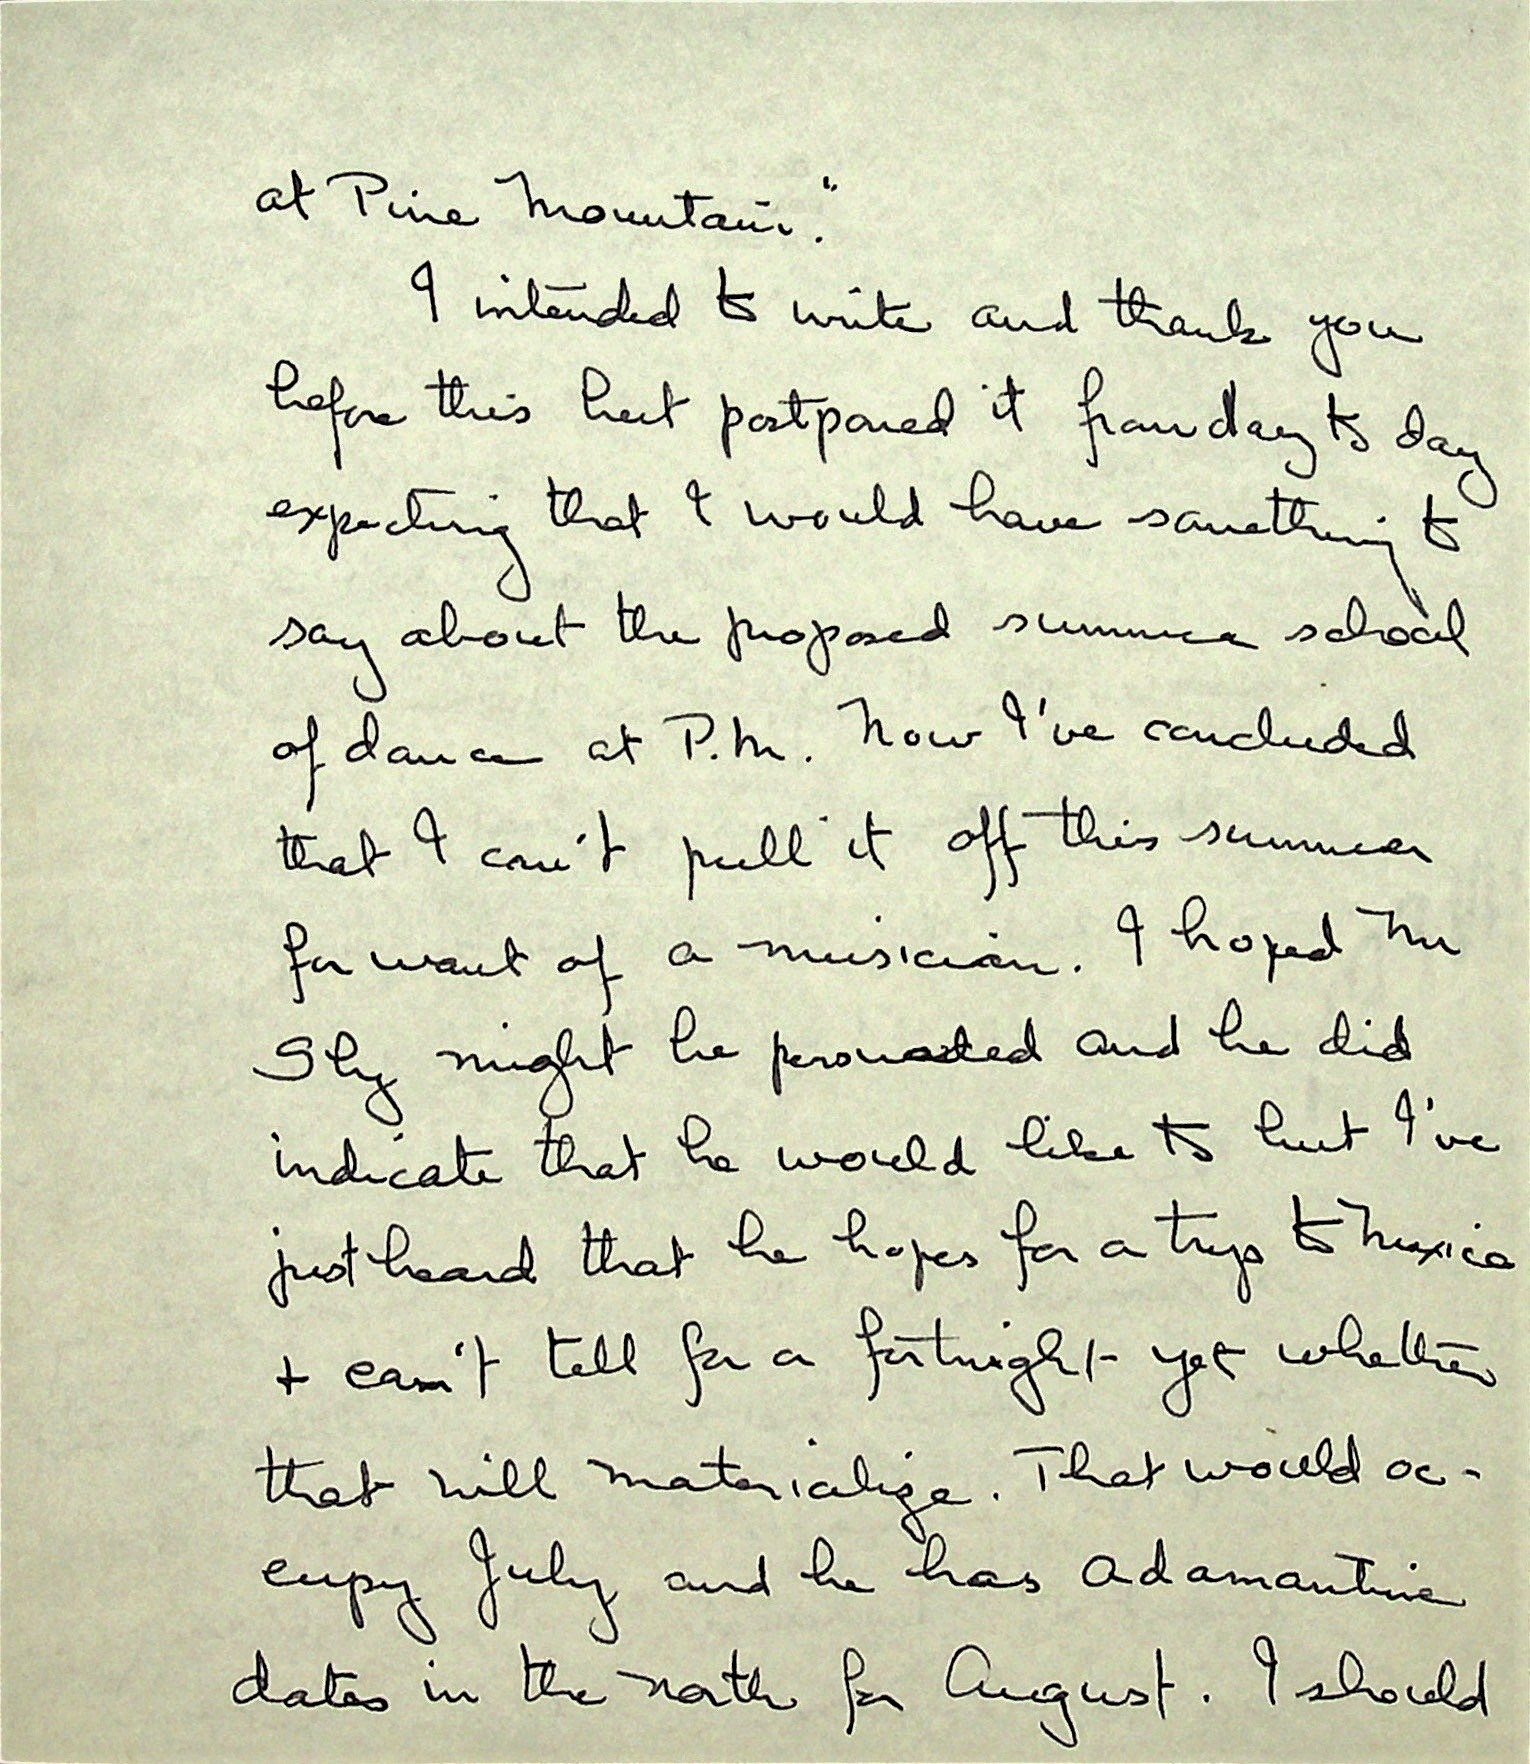 at Pine Mountain."
I intended to write and thank you
before this but postponed it from day to day
expecting that I would have something to
say about the proposed summer school
of dance at P.M. Now I've concluded
that I can't pull it off this summer
for want of a musician. I hoped Mr
Sly might be persuaded and he did
indicate that he would like to but I've
just heard that he hopes for a trip to Mexico
+ can't tell for a fortnight yet whether
that will materialize. That would oc-
cupy July and he has adamantine
dates in the north for August. I should